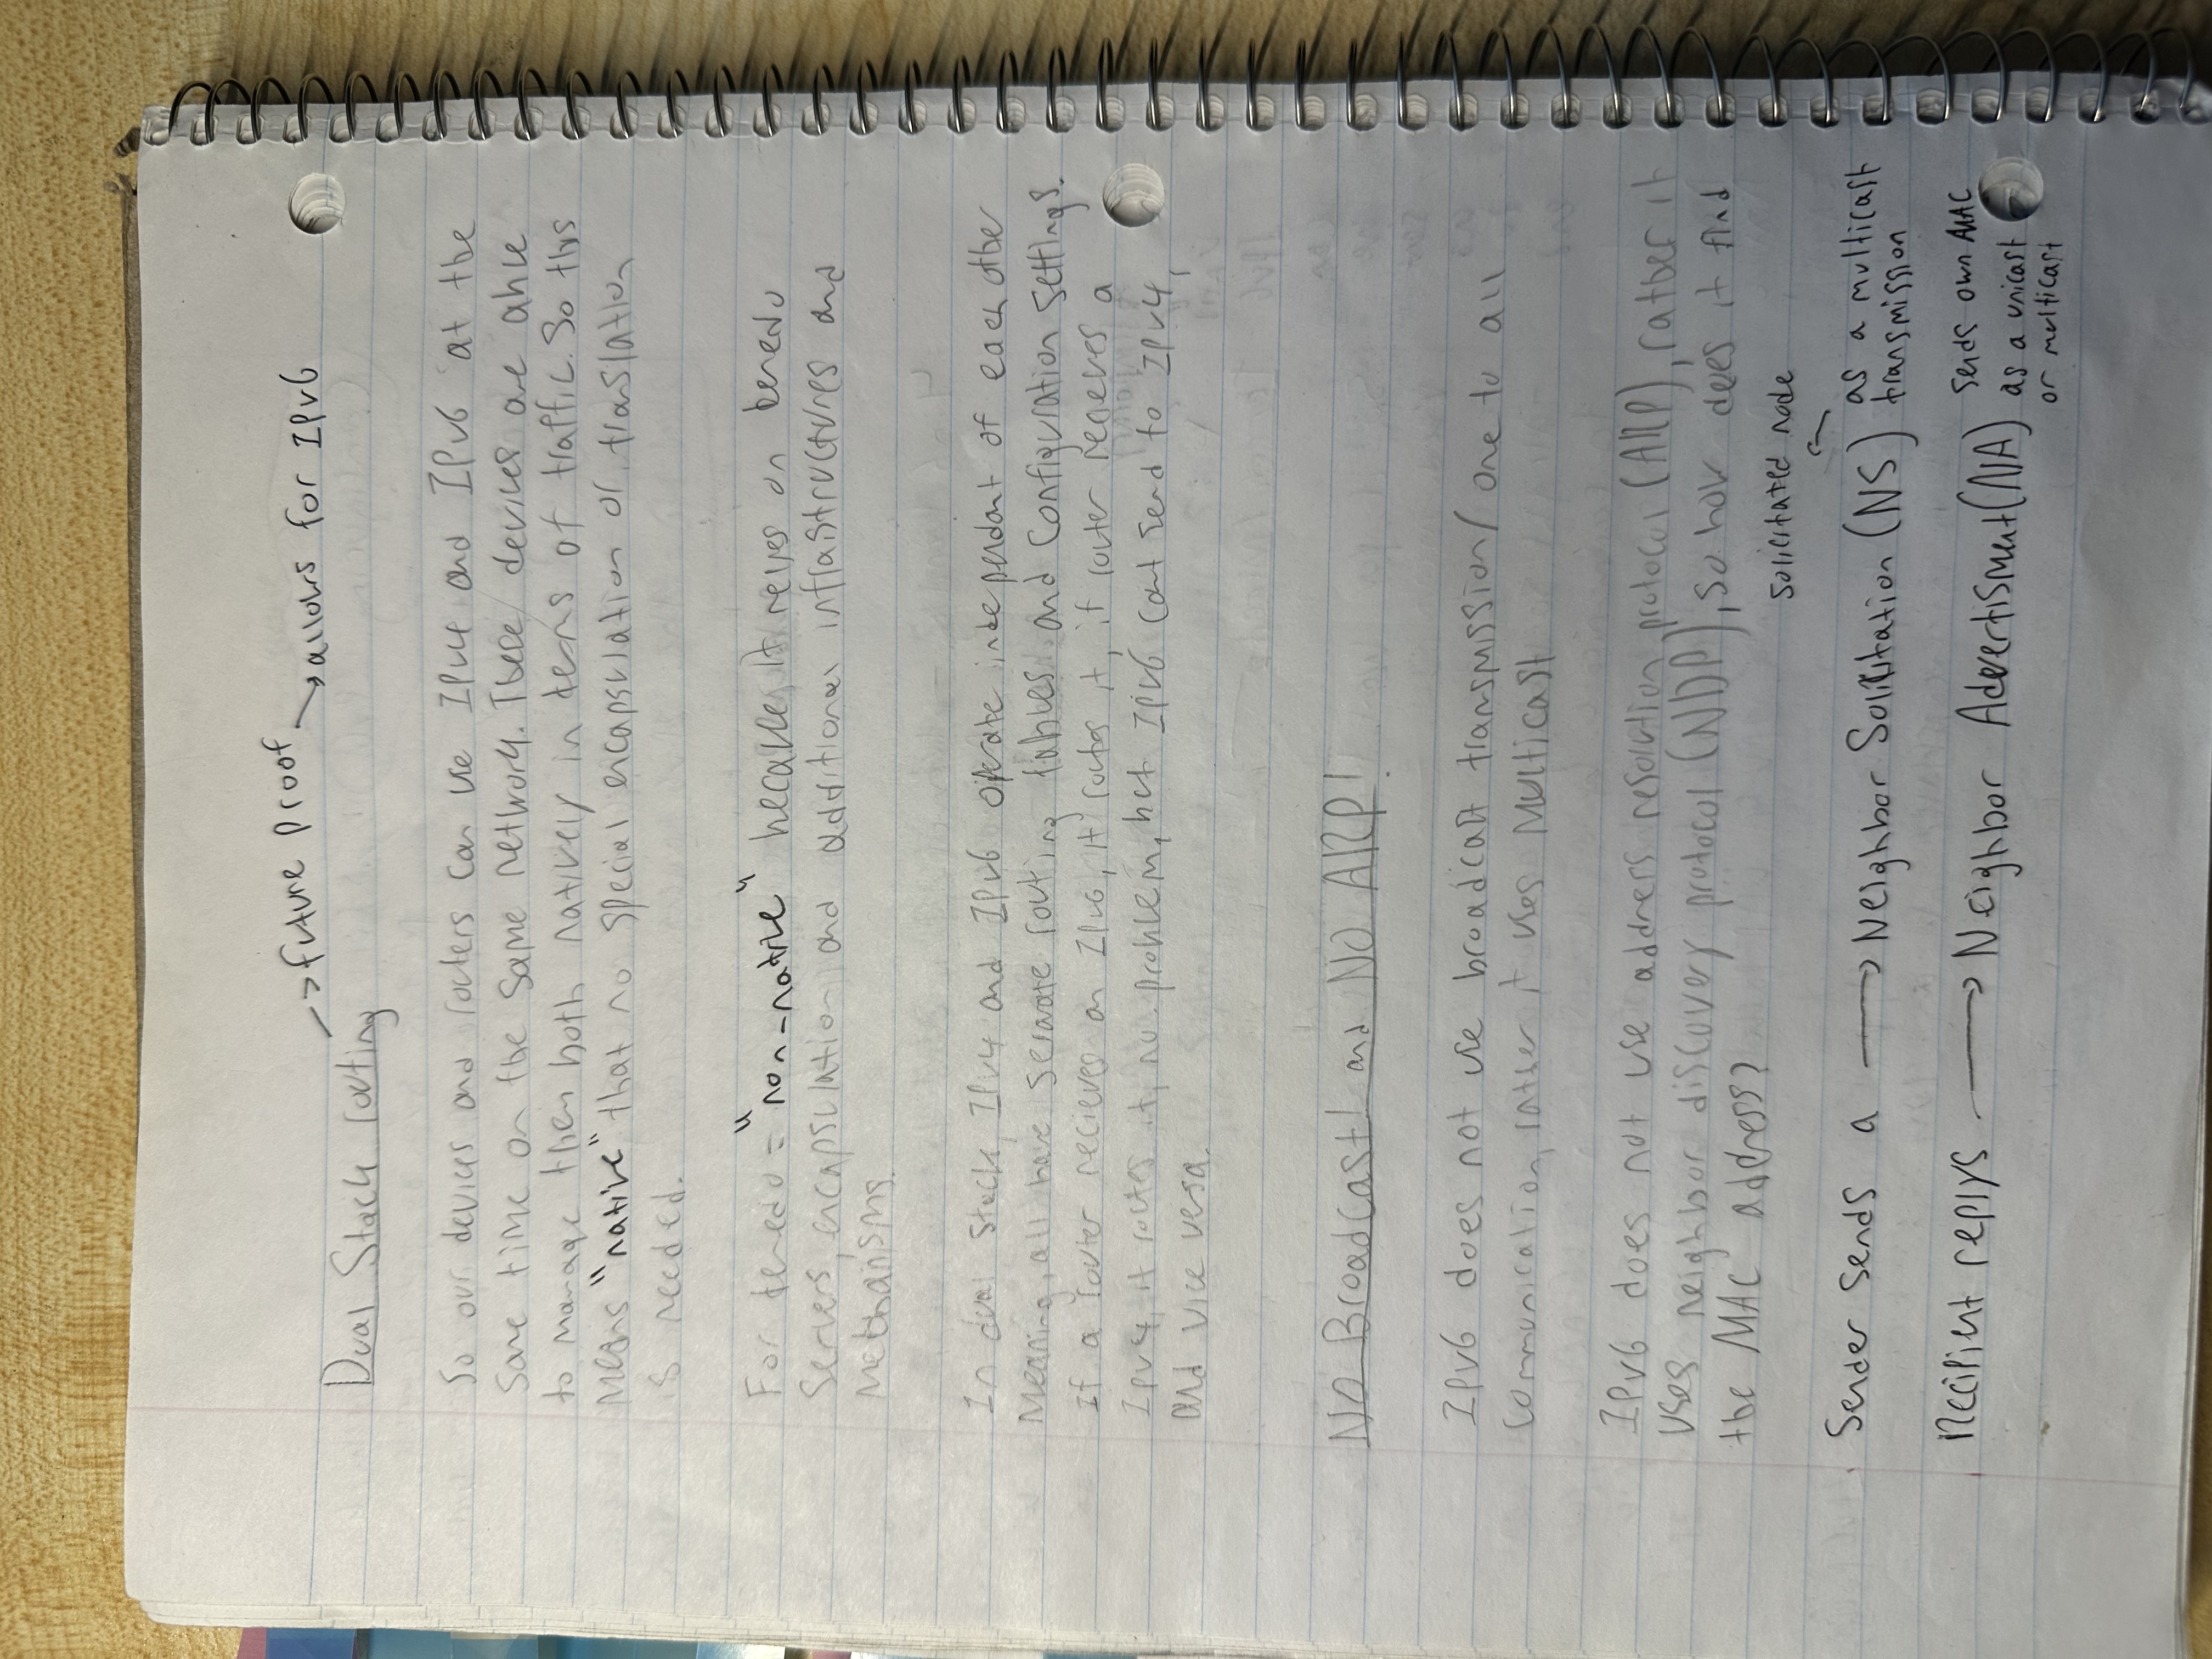 ->future proof
->allows for IPv6
Dual Stack routing
So our devices and routers can use IPv4 and IPv6 at the
same time on the same network. These devices are able
to manage them both natively in terms of traffic. So this
means "native" that no special encapsulation or translation
is needed.
For teredo = "non-native" because it relyes on teredo
servers, encapsulation and additional infrastructures and
mechanisms.
In dual stack, IPv4 and IPv6 operate independant of each other
meaning, all have separate routing tables and configuration settings.
If a router recieves an IPv6, it routes it, if router recieves a
IPv4, it routes it, no problem, but IPv6 cant send to IPv4,
and vice versa.
NO Broadcast! and NO ARP!
IPv6 does not use broadcast transmission/ one to all
communication, rather it uses Multicast
IPv6 does not use address resolution protocol (ARP), rather it
uses neighbor discovery protocol (NDP), so how does it find
the MAC address?
solicitated node
Sender sends a —> Neighbor Solicitation (NS) as a multicast
transmission
Recipient replys —> Neighbor Advertisment (NA) sends own MAC
as a unicast
or multicast